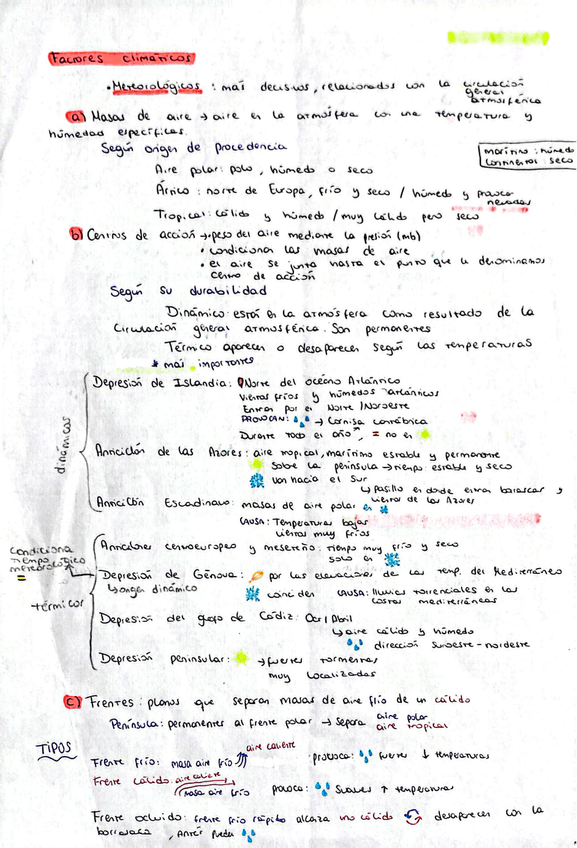 Factores climáticos
• Meteorológicos : más decisivos, relacionados con la circulación
general
atmosférica
a) Masas de aire → aire en la atmósfera con una temperatura y
húmedad específicas.
Según origen de procedencia
marítimo : húmedo
continental : seco
Aire polar: polo, húmedo o seco
Ártico : norte de Europa, frío y seco / húmedo y provoca
nevadas
Tropical : cálido y húmedo / muy cálido pero seco
b) Centros de acción → peso del aire mediante la presión (mb)
• condicionan las masas de aire
• el aire se junta hasta el punto que le denominamos
centro de acción
Según su durabilidad
Dinámico: están en la atmósfera como resultado de la
circulación general atmosférica. Son permanentes
Térmico aparecen o desaparecen según las temperaturas
* más importantes
dinámicos
Depresión de Islandia: Norte del océano Atlántico
Vientos fríos y húmedos atlánticos
Entran por el Norte / Noroeste
PROVOCAN: → Cornisa cantábrica
Durante todo el año, = no en
Anticiclón de las Azores: aire tropical, marítimo estable y permanente
sobre la península → tiempo estable y seco
van hacia el Sur
↳ pasillo en donde entran borrascas y
vientos de las Azores
Anticiclón Escadinavo: masas de aire polar en
CAUSA: Temperaturas bajas
vientos muy fríos
condiciona
tiempo
meteorológico
térmicos
Anticiclones centroeuropeo y meseteño: tiempo muy frío y seco
solo en
Depresión de Génova: por las elevaciones de las temp. del Mediterráneo
↳ origen dinámico
CAUSA: lluvias torrenciales en la
costas mediterráneas
Depresión del golfo de Cádiz: Oct / Abril
↳ aire cálido y húmedo
dirección suroeste-nordeste
Depresión peninsular: → fuertes tormentas
muy localizadas
c) Frentes : planos que separan masas de aire frío de un cálido
Península: permanentes al frente polar → separa aire polar
aire tropical
TIPOS
Frente frío: masa aire frío aire caliente provoca: fuertes ↓ temperaturas
Frente cálido: aire caliente
masa aire frío provoca: suaves ↑ temperaturas
Frente ocluido: frente frío rápido alcanza uno cálido desaparecen con la
borrasca, Antes